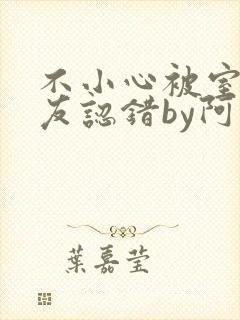 不小心被室
友認錯by阿
葉嘉瑩